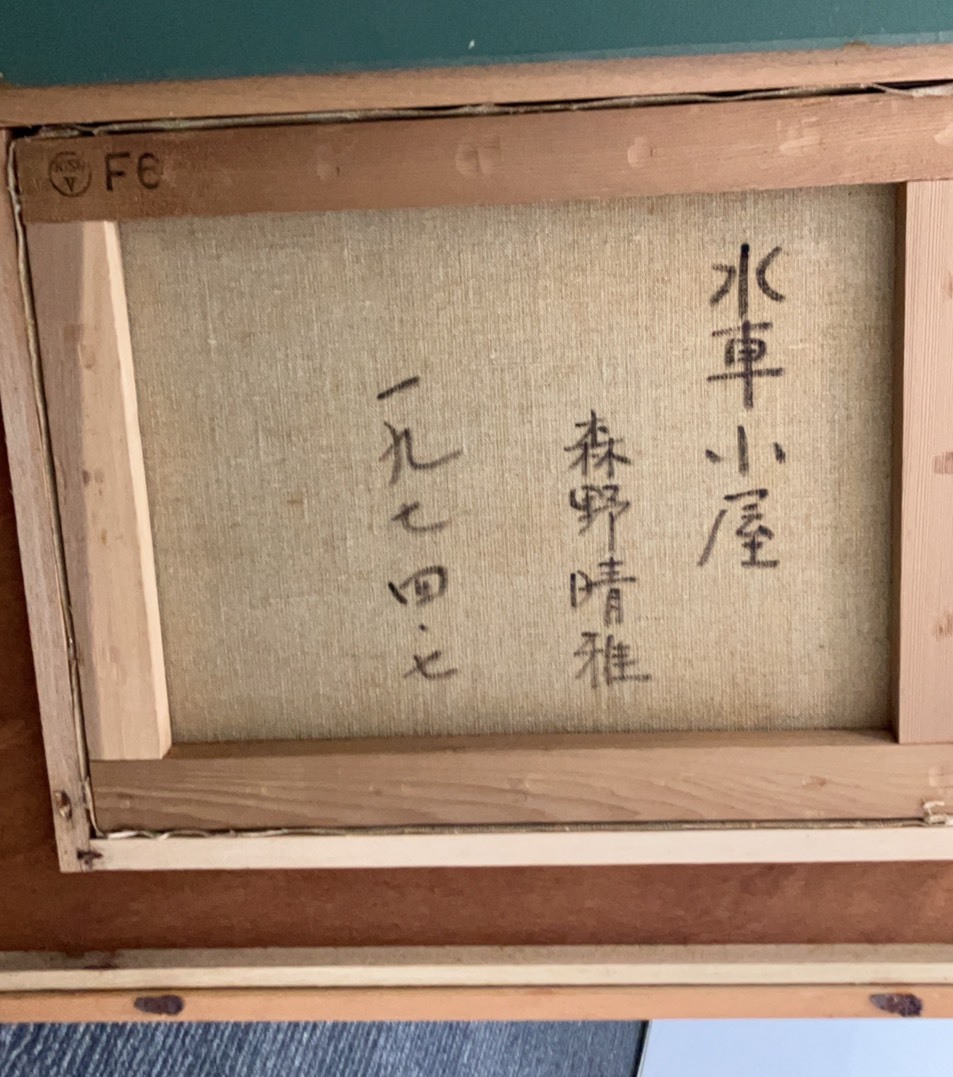 水車小屋
森野晴雅
一九七四・七
F6